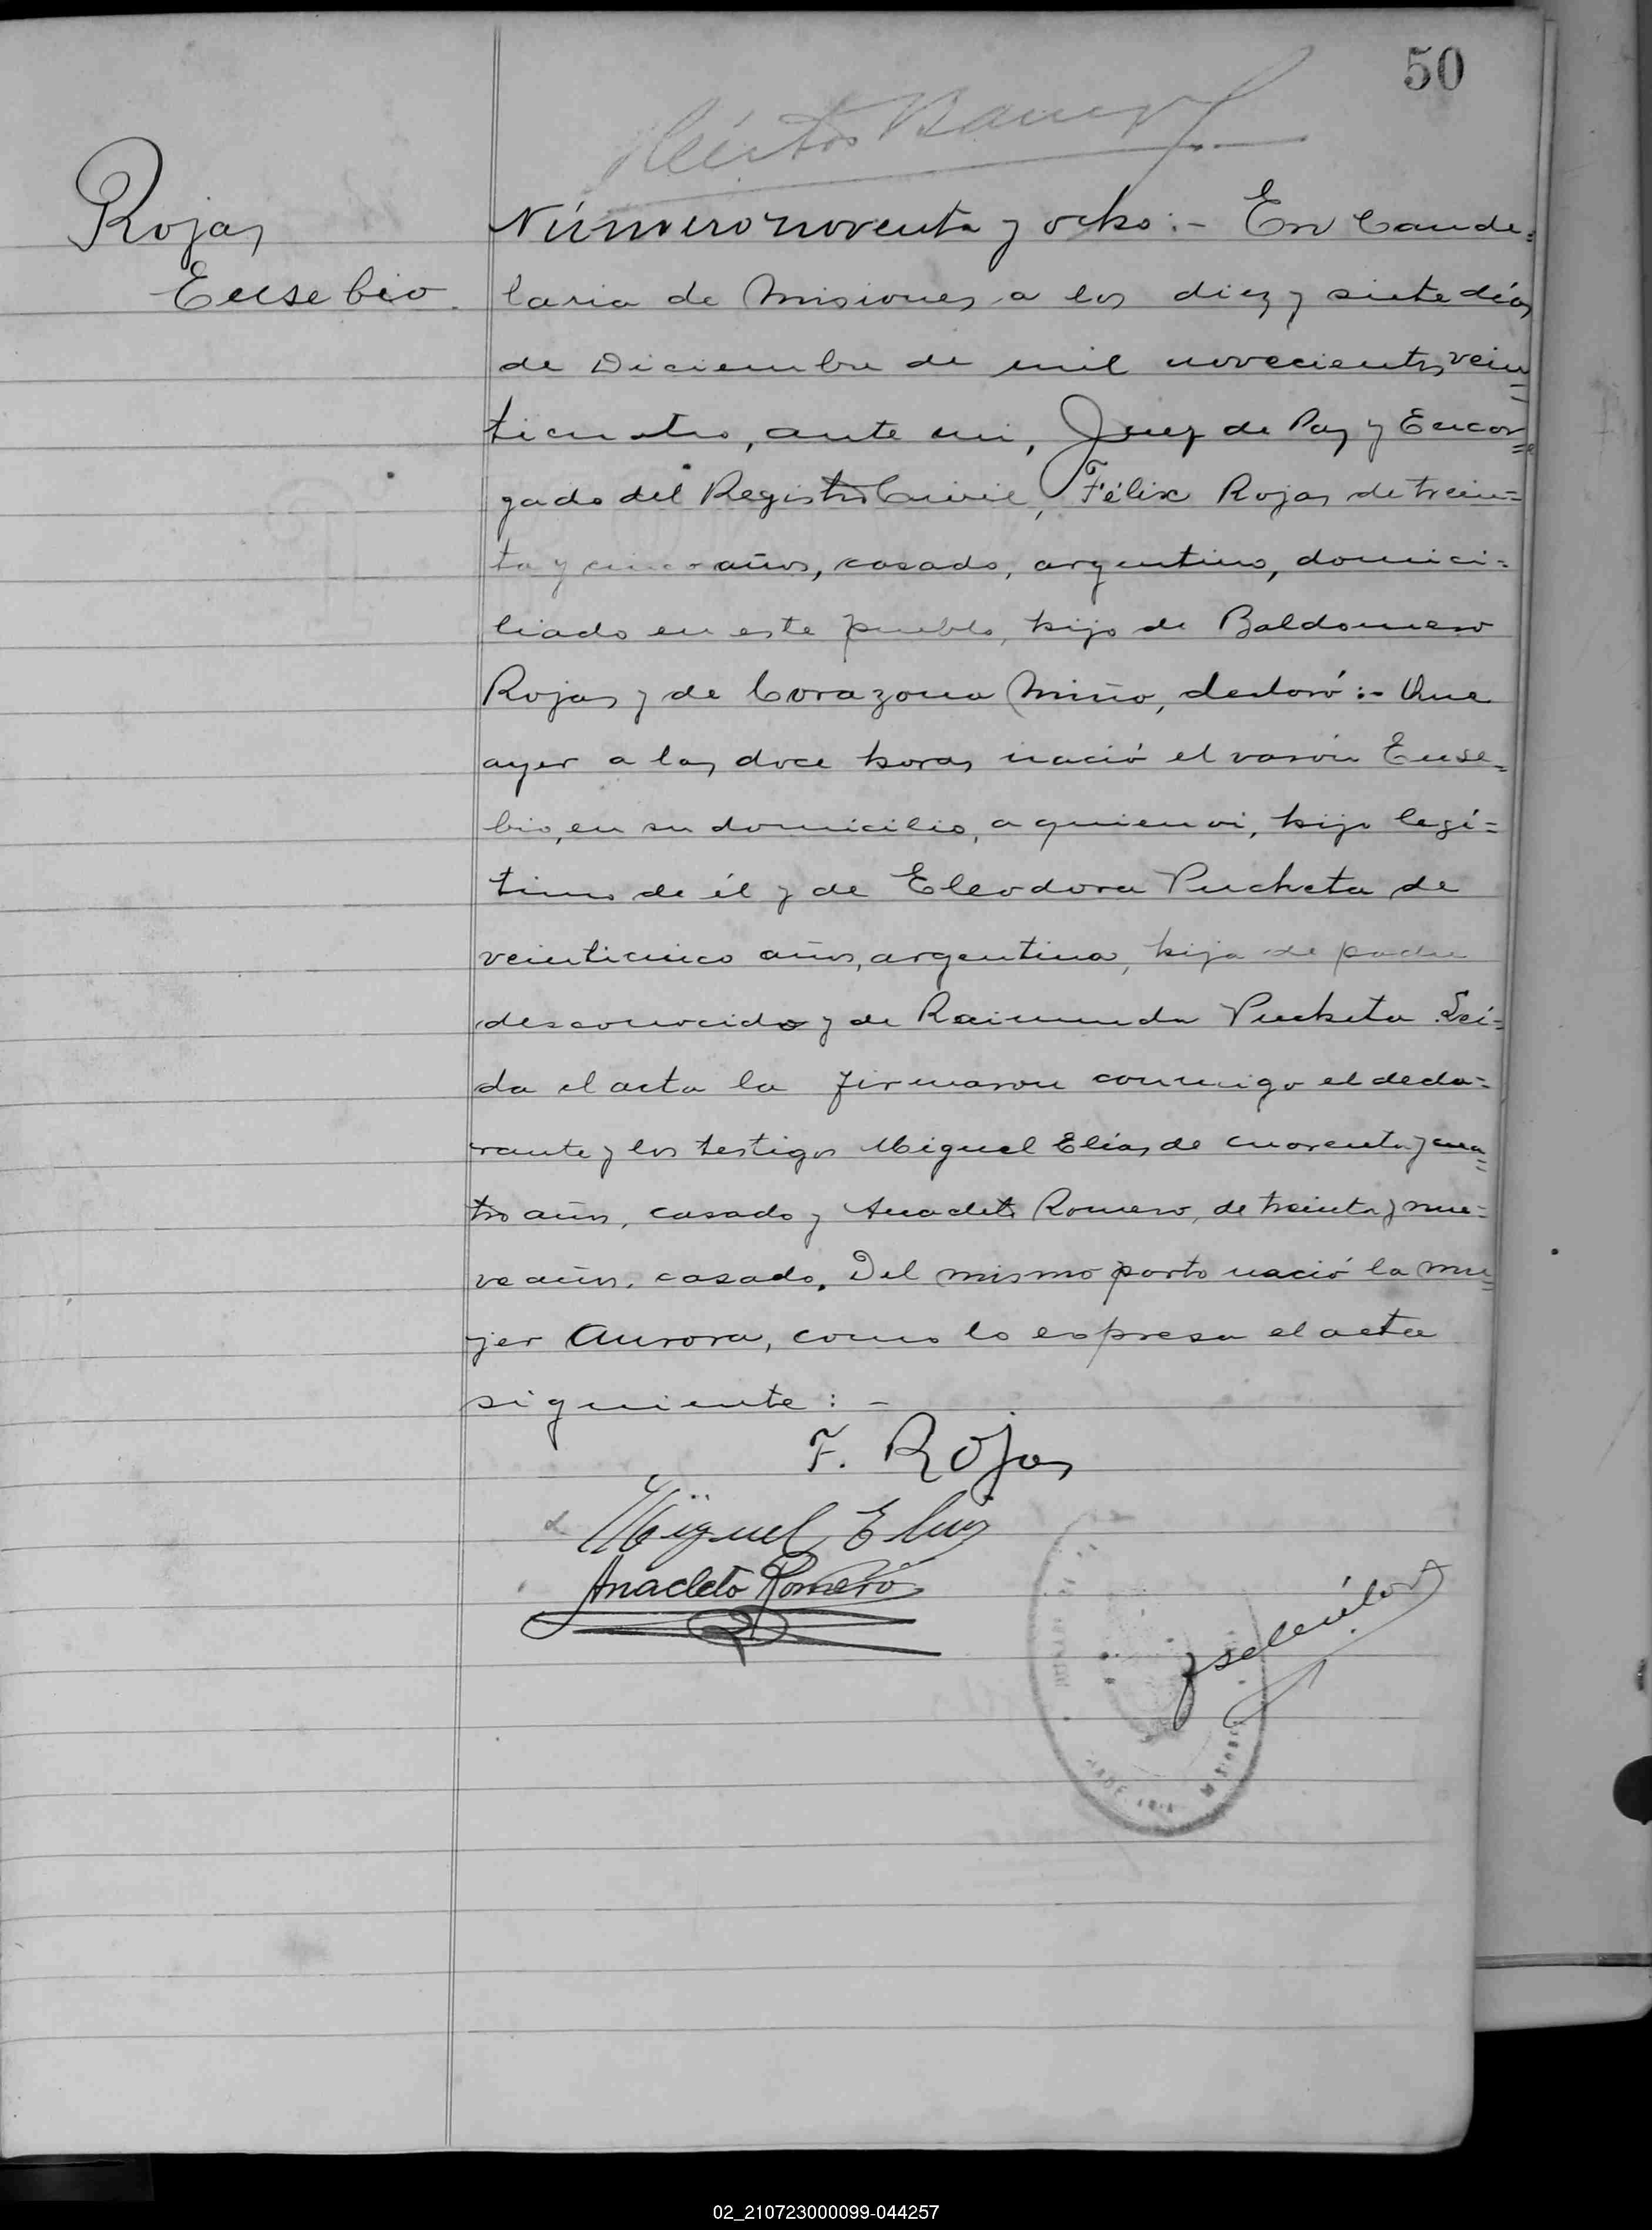 50
Rojas
Eusebio.
Número noventa y ocho:- En Cande=
laria de Misiones a los diez y siete días
de Diciembre de mil novecientos vein=
ticuatro, ante mi, Juez de Paz y Encar=
gado del Registro Civil, Félix Rojas de trein=
ta y cinco años, casado, argentino, domici=
liado en este pueblo, hijo de Baldomero
Rojas y de Corazona Miño, declaró:- Que
ayer a las doce horas nació el varón Euse=
bio, en su domicilio, a quien vi, hijo legí=
timo de él y de Eleodora Pucheta de
veinticinco años, argentina, hija de padre
desconocido y de Raimunda Pucheta. Leí=
da el acta la firmaron conmigo el decla=
rante y los testigos Miguel Elias de cuarenta y cua=
tro años, casado y Anacleto Romero, de treinta y nue=
ve años, casado. Del mismo parto nació la mu=
jer Aurora, como lo espresa el acta
siguiente: -
F. Rojas
Miguel Elias
Anacleto Romero
02_210723000099-044257